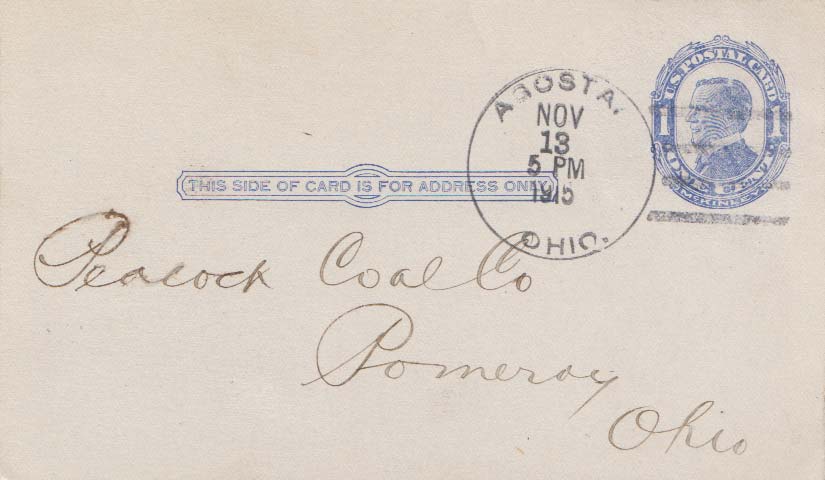 U.S. POSTAL CARD
1 1
McKINLEY
AGOSTA,
NOV
13
5 PM
1915
OHIO.
THIS SIDE OF CARD IS FOR ADDRESS ONLY
Peacock Coal Co
Pomeroy
Ohio